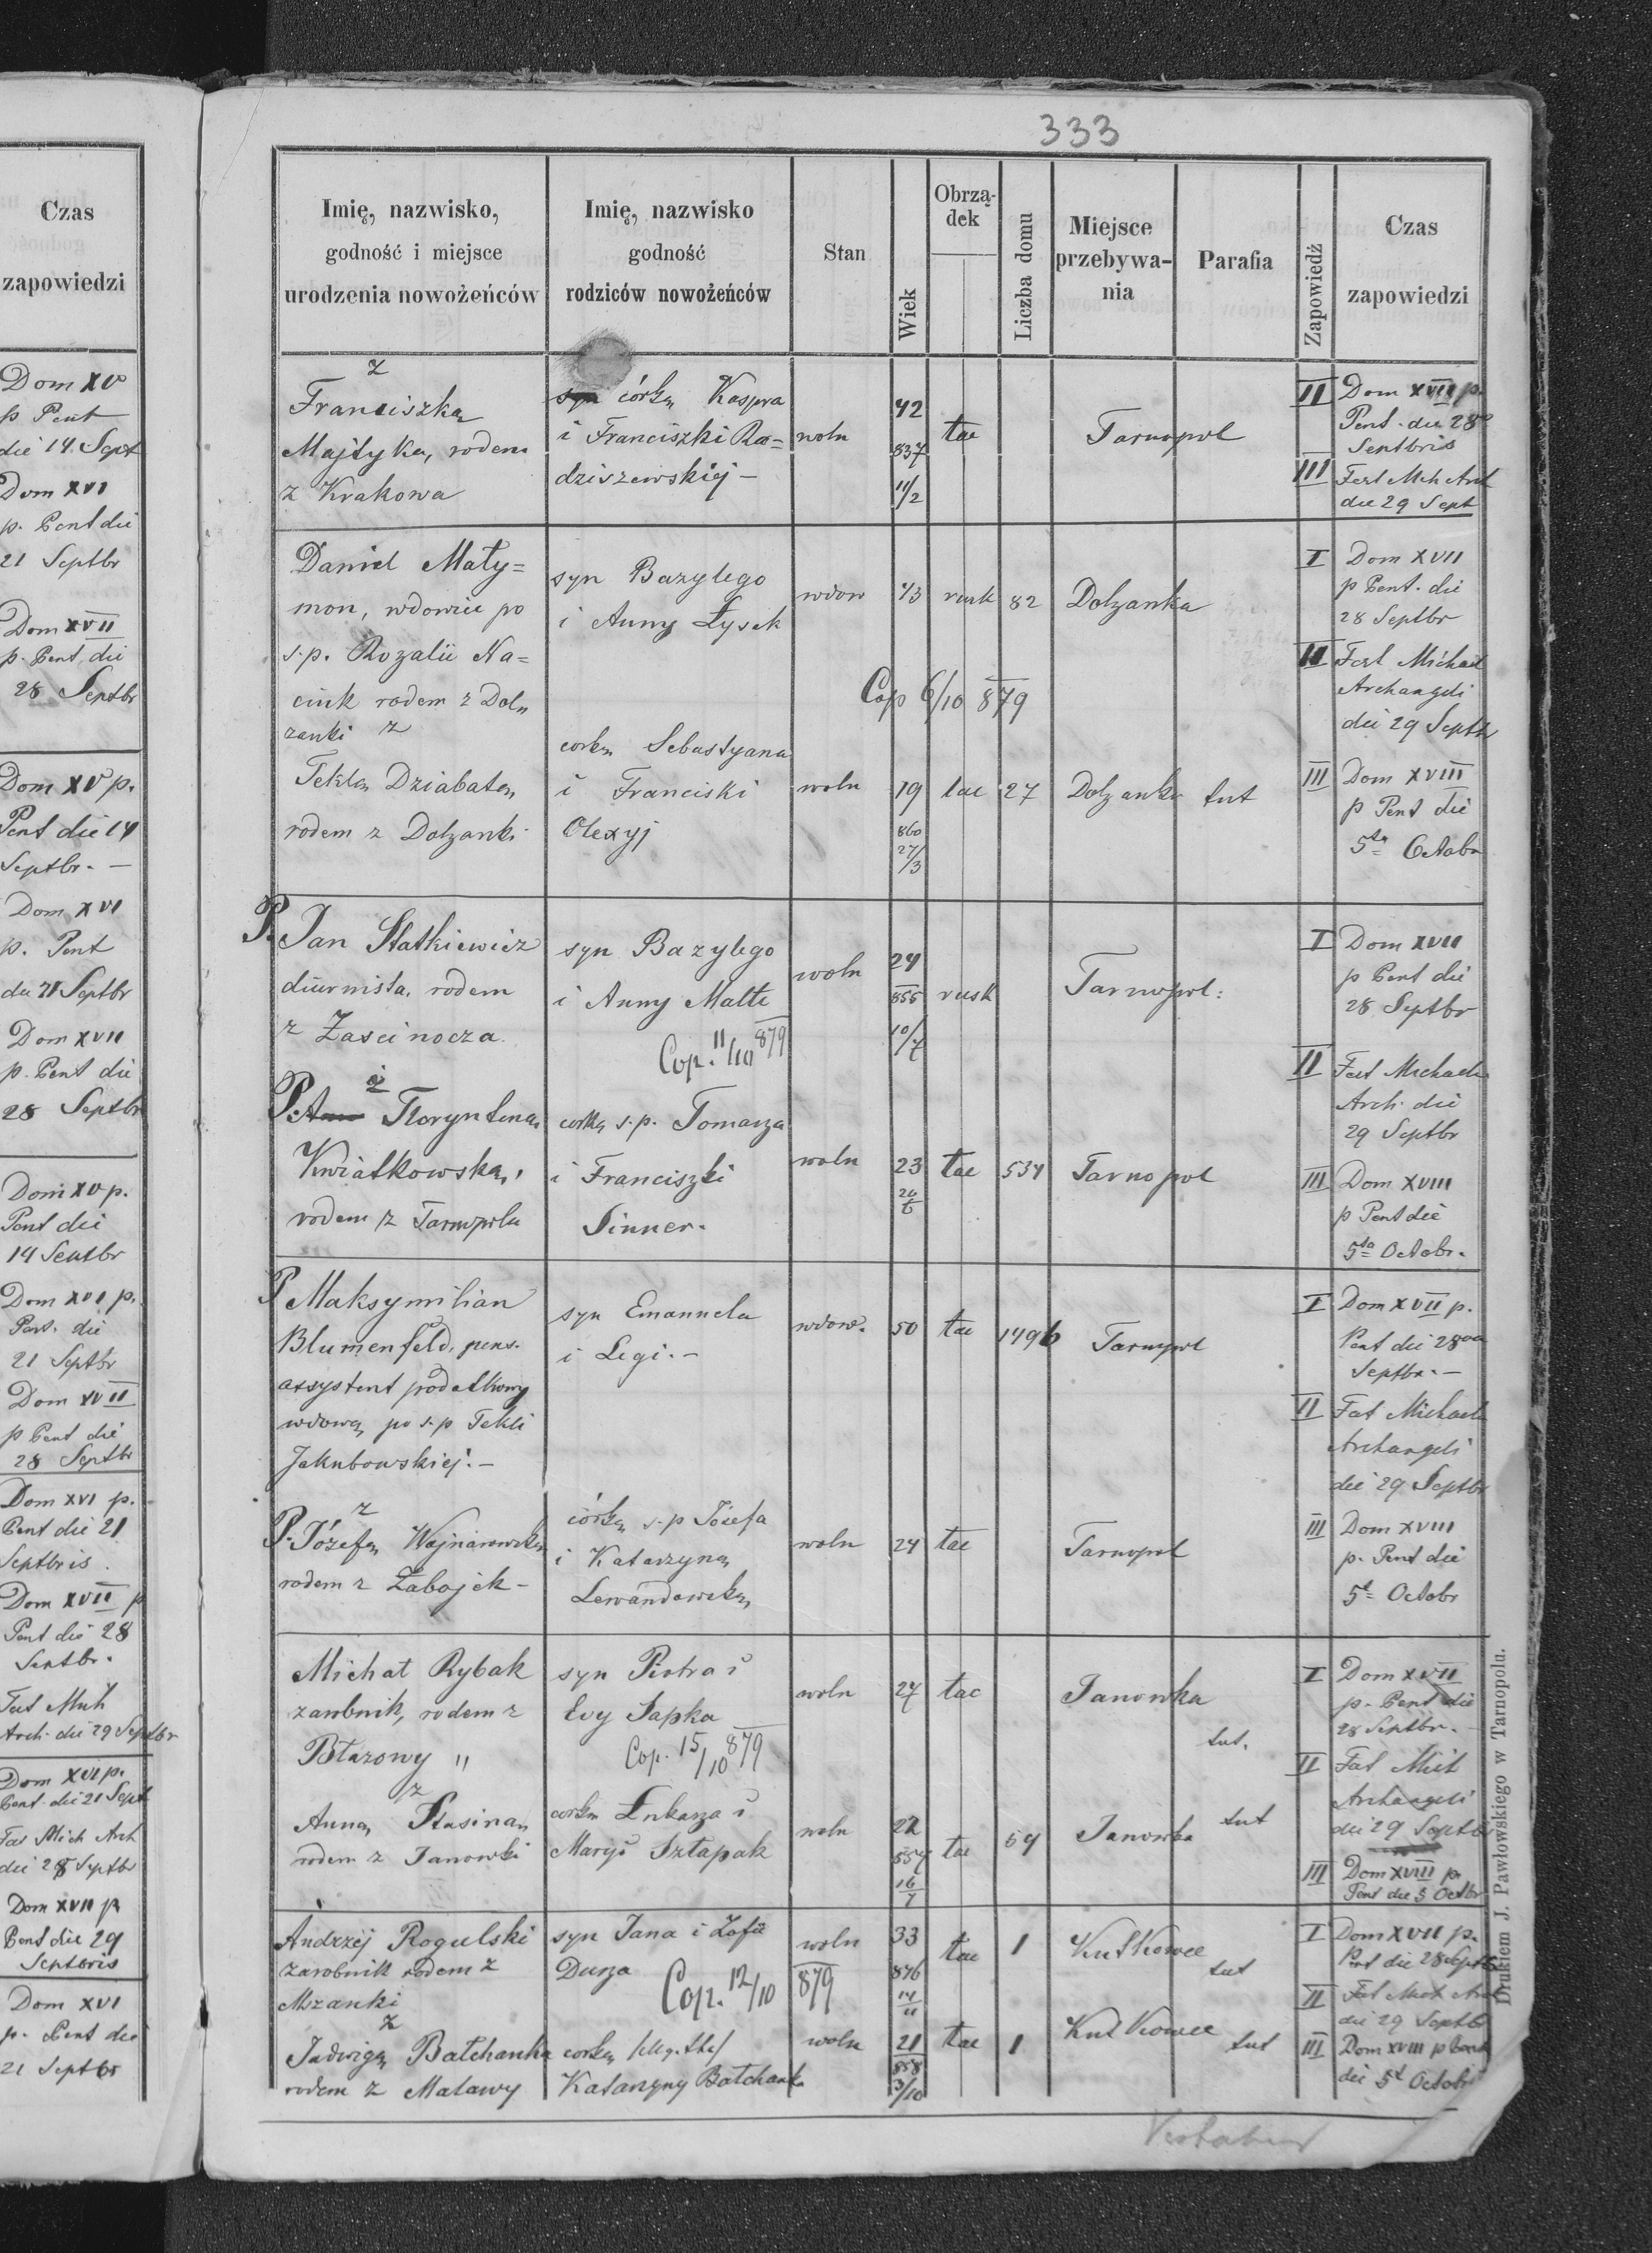 333
Czas
zapowiedzi
Dom XV
p Pent
die 14. Sept
Dom XVI
p. Pent die
21 Septbr
Dom XVII
p. Pent die
28 Septbr
Dom XV p.
Pent die 14
Septbr. —
Dom XVI
p. Pent
die 21 Septbr
Dom XVII
p. Pent die
28 Septbr
Dom XV p.
Pent die
14 Septbr
Dom XVI p.
Pent. die
21 Septbr
Dom XVII
p Pent die
28 Septbr
Dom XVI p.
Pent die 21
Septbris.
Dom XVII p
Pent die 28
Septbr.
Fest Mich
Arch. die 29 Septbr
Dom XVI p.
Pent. die 21 Sept
Fest Mich Arch
die 28 Septbr
Dom XVII p
Pent die 29
Septbris
Dom XVI
p. Pent die
21 Septbr
Imię, nazwisko,
godność i miejsce
urodzenia nowożeńców
Imię, nazwisko
godność
rodziców nowożeńców
Stan
Wiek
Obrzą-
dek
Liczba domu
Miejsce
przebywa-
nia
Parafia
Zapowiedź
Czas
zapowiedzi
z
Franciszką
Majtyką, rodem
z Krakowa
syn córką Kaspra
i Franciszki Ra=
dziszewskiej —
woln
42
837
11/2
łac
Tarnopol
II Dom XVII p.
Pent. die 28
Septbris
III Fest Mich Arch
die 29 Sept
Daniel Maty=
mon, wdowiec po
ś.p. Rozalii Na=
ciuk rodem z Doł
żanki z
syn Bazylego
i Anny Łysek
wdow 43 rusk 82 Dołżanka
Cop 6/10 879
I Dom XVII
p Pent. die
28 Septbr
II Fest Michael
Archangeli
die 29 Septbr
Teklą Dziabatą
rodem z Dołżanki
córką Sebastyana
i Franciski
Olexyj
woln 19 łac 27 Dołżanka tut
860
27/3
III Dom XVIII
p Pent die
5ta Octobr
P. Jan Statkiewicz
diurnista, rodem
z Zaścinocza
syn Bazylego
i Anny Malte
Cop. 11/10 879
woln
24
855
10/7
rusk
Tarnopol.
I Dom XVII
p Pent die
28 Septbr
II Fest Michaelis
Arch. die
29 Septbr
i
P. Floryntena
Kwiatkowska,
rodem z Tarnopola
córka ś.p. Tomasza
i Franciszki
Sinner.
woln 23 łac 534 Tarnopol
III Dom XVIII
p Pent die
5ta Octobr.
P Maksymilian
Blumenfeld, pens.
assystent podatkowy
wdową po ś.p Tekli
Jakubowskiej. —
syn Emanuela
i Legi. —
wdow. 50 łac 1496 Tarnopol
I Dom XVII p.
Pent die 28
Septbr. —
II Fest Michaelis
Archangeli
die 29 Septbr
z
P. Józefą Wojnarowską
rodem z Zabojek —
córką ś.p Józefa
i Katarzyną
Lewandowską
woln 24 łac
Tarnopol
III Dom XVIII
p. Pent die
5t Octobr
Michał Rybak
zarobnik, rodem z
Błażowy "
syn Piotra i
Evy Sapka
Cop. 15/10 879
woln 27 łac
Janówka
tut.
I Dom XVII
p. Pent die
28 Septbr. —
II Fest Mich
Archangeli
die 29 Septbr
z
Anną Stasiną
rodem z Janówki
córką Łukasza i
Maryi Sztapak
woln 22
857
16/7
łac 54 Janówka tut
III Dom XVIII p.
Pent die 5 Octbr
Andrzej Rogulski
zarobnik rodem z
Mszanki
z
syn Jana i Zofii
Duszа
Cop. 12/10 879
woln 33
846
14/11
łac 1 Kutkowce
tut
I Dom XVII p.
Pent die 28 Septbr
II Fest Mich Arch
die 29 Septbr
Jadwigą Batchanką
rodem z Malawy
córką
Katarzyny Batchanka
woln 21
858
3/10
łac 1 Kutkowce tut
III Dom XVIII p Pent
die 5t Octobr
Drukiem J. Pawłowskiego w Tarnopolu.